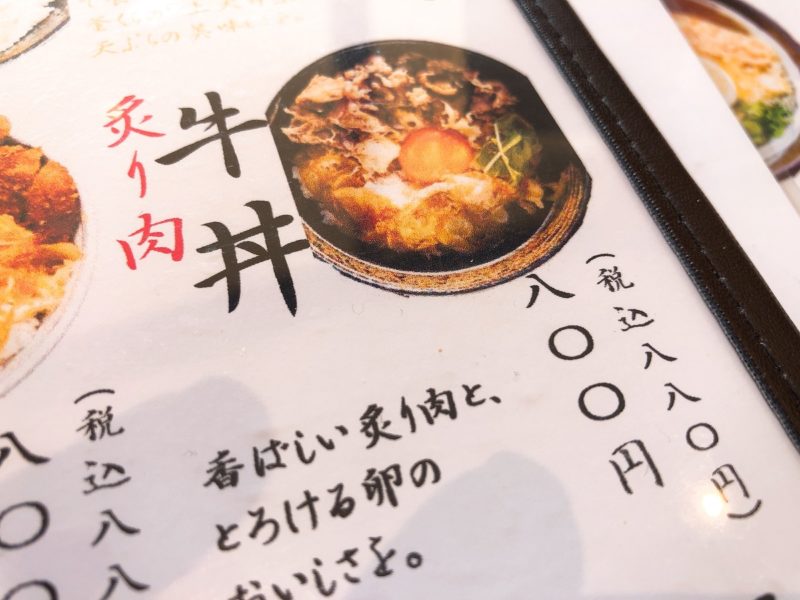 炙り肉
牛丼
八〇〇円
(税込八八〇円)
香ばしい炙り肉と、
とろける卵の
おいしさを。
八〇
(税込八八